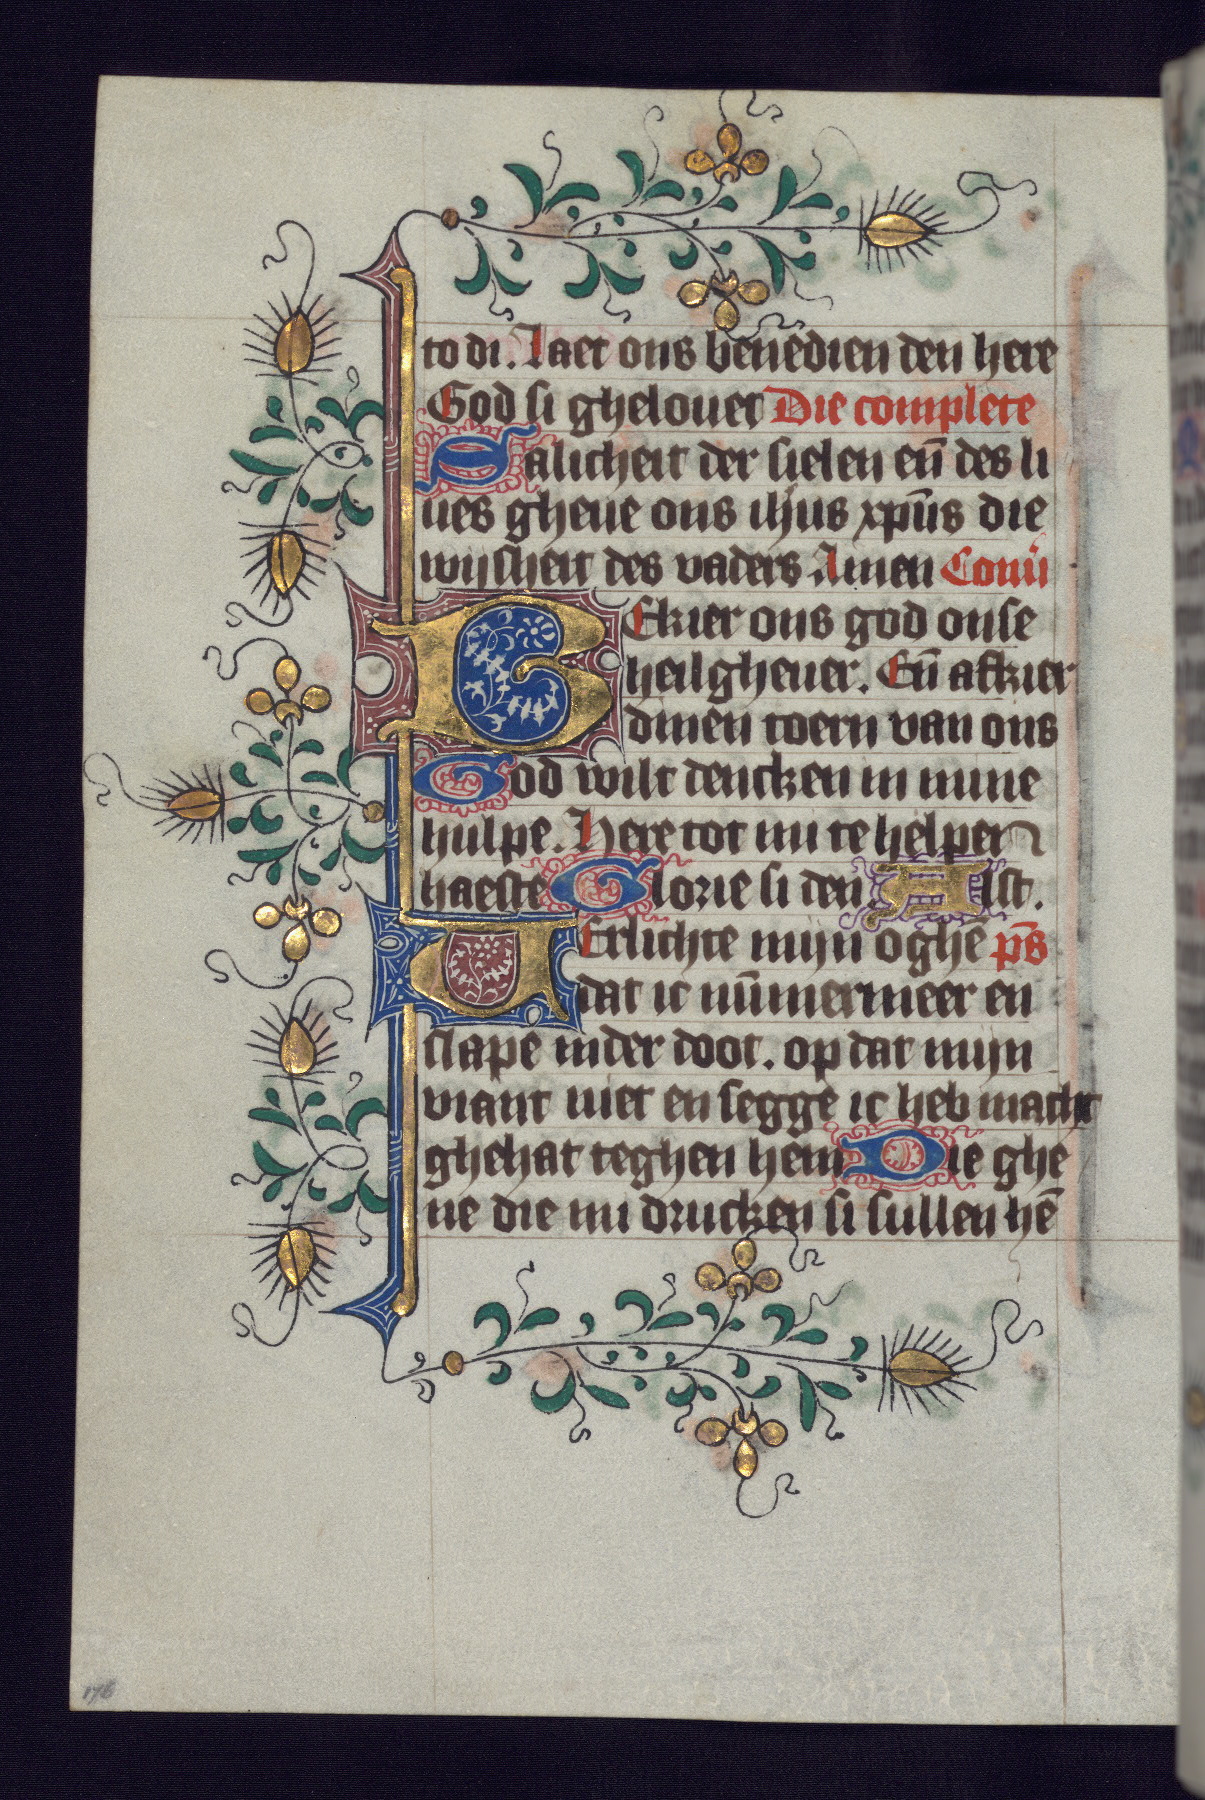 to di. Laet ons benedien den here
God si ghelovet Die complete
Salicheit der sielen eñ des li
ues gheue ons ihus xpūs die
wijsheit des vaders Amen Conuū
BEkier ons god onse
heilgheuer. Eñ afkier
dinen toern van ons
God wilt dencken in mine
hulpe. Here tot mi te helpen
haeste Glorie si den. Alst.
VErlichte mijn oghē pš
dat ic nūmermeer en
slape inder doot. op dat mijn
viant niet en segge ic heb macht
ghehat teghen hem Die ghe
ne die mi drucken si sullen hē
176